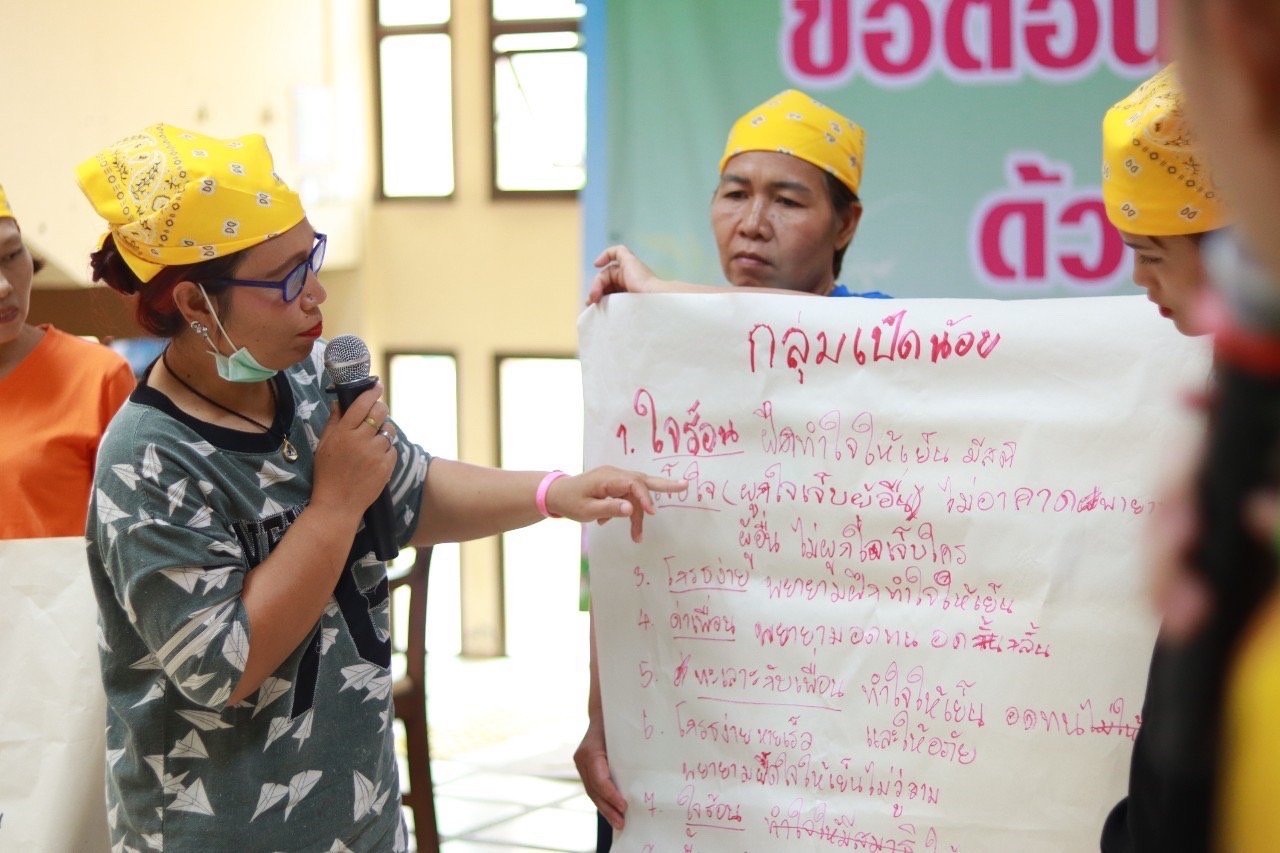 ขอต้อน
ด้ว
กลุ่มเป็ดน้อย
1. ใจร้อน ฝึกทำใจให้เย็น มีสติ
ใจ (ผูกใจเจ็บผู้อื่น) ไม่อาคาด พายา
ผู้อื่น ไม่ผูกใจเจ็บใคร
3. โกรธง่าย พยายามฝึกทำใจให้เย็น
4. ด่าเพื่อน พยายามอดทน อด กลั้น
5. ทะเลาะกับเพื่อน ทำใจให้เย็น อดทน
6. โกรธง่ายหายเร็ว และให้อภัย
พยายาม ใจให้เย็นไม่วู่วาม
7. ใจร้อน ทำใจให้มีสมาธิ